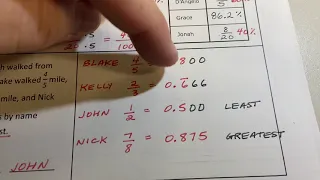 D'Angelo 5
20 · 5 100
Grace 86.2%
Jonah 8/20 40%
h walked from
ake walked 4/5 mile,
mile, and Nick
st.
JOHN
BLAKE 4/5 800
KELLY 2/3 0.666
JOHN 1/2 = 0.500 LEAST
NICK 7/8 = 0.875 GREATEST